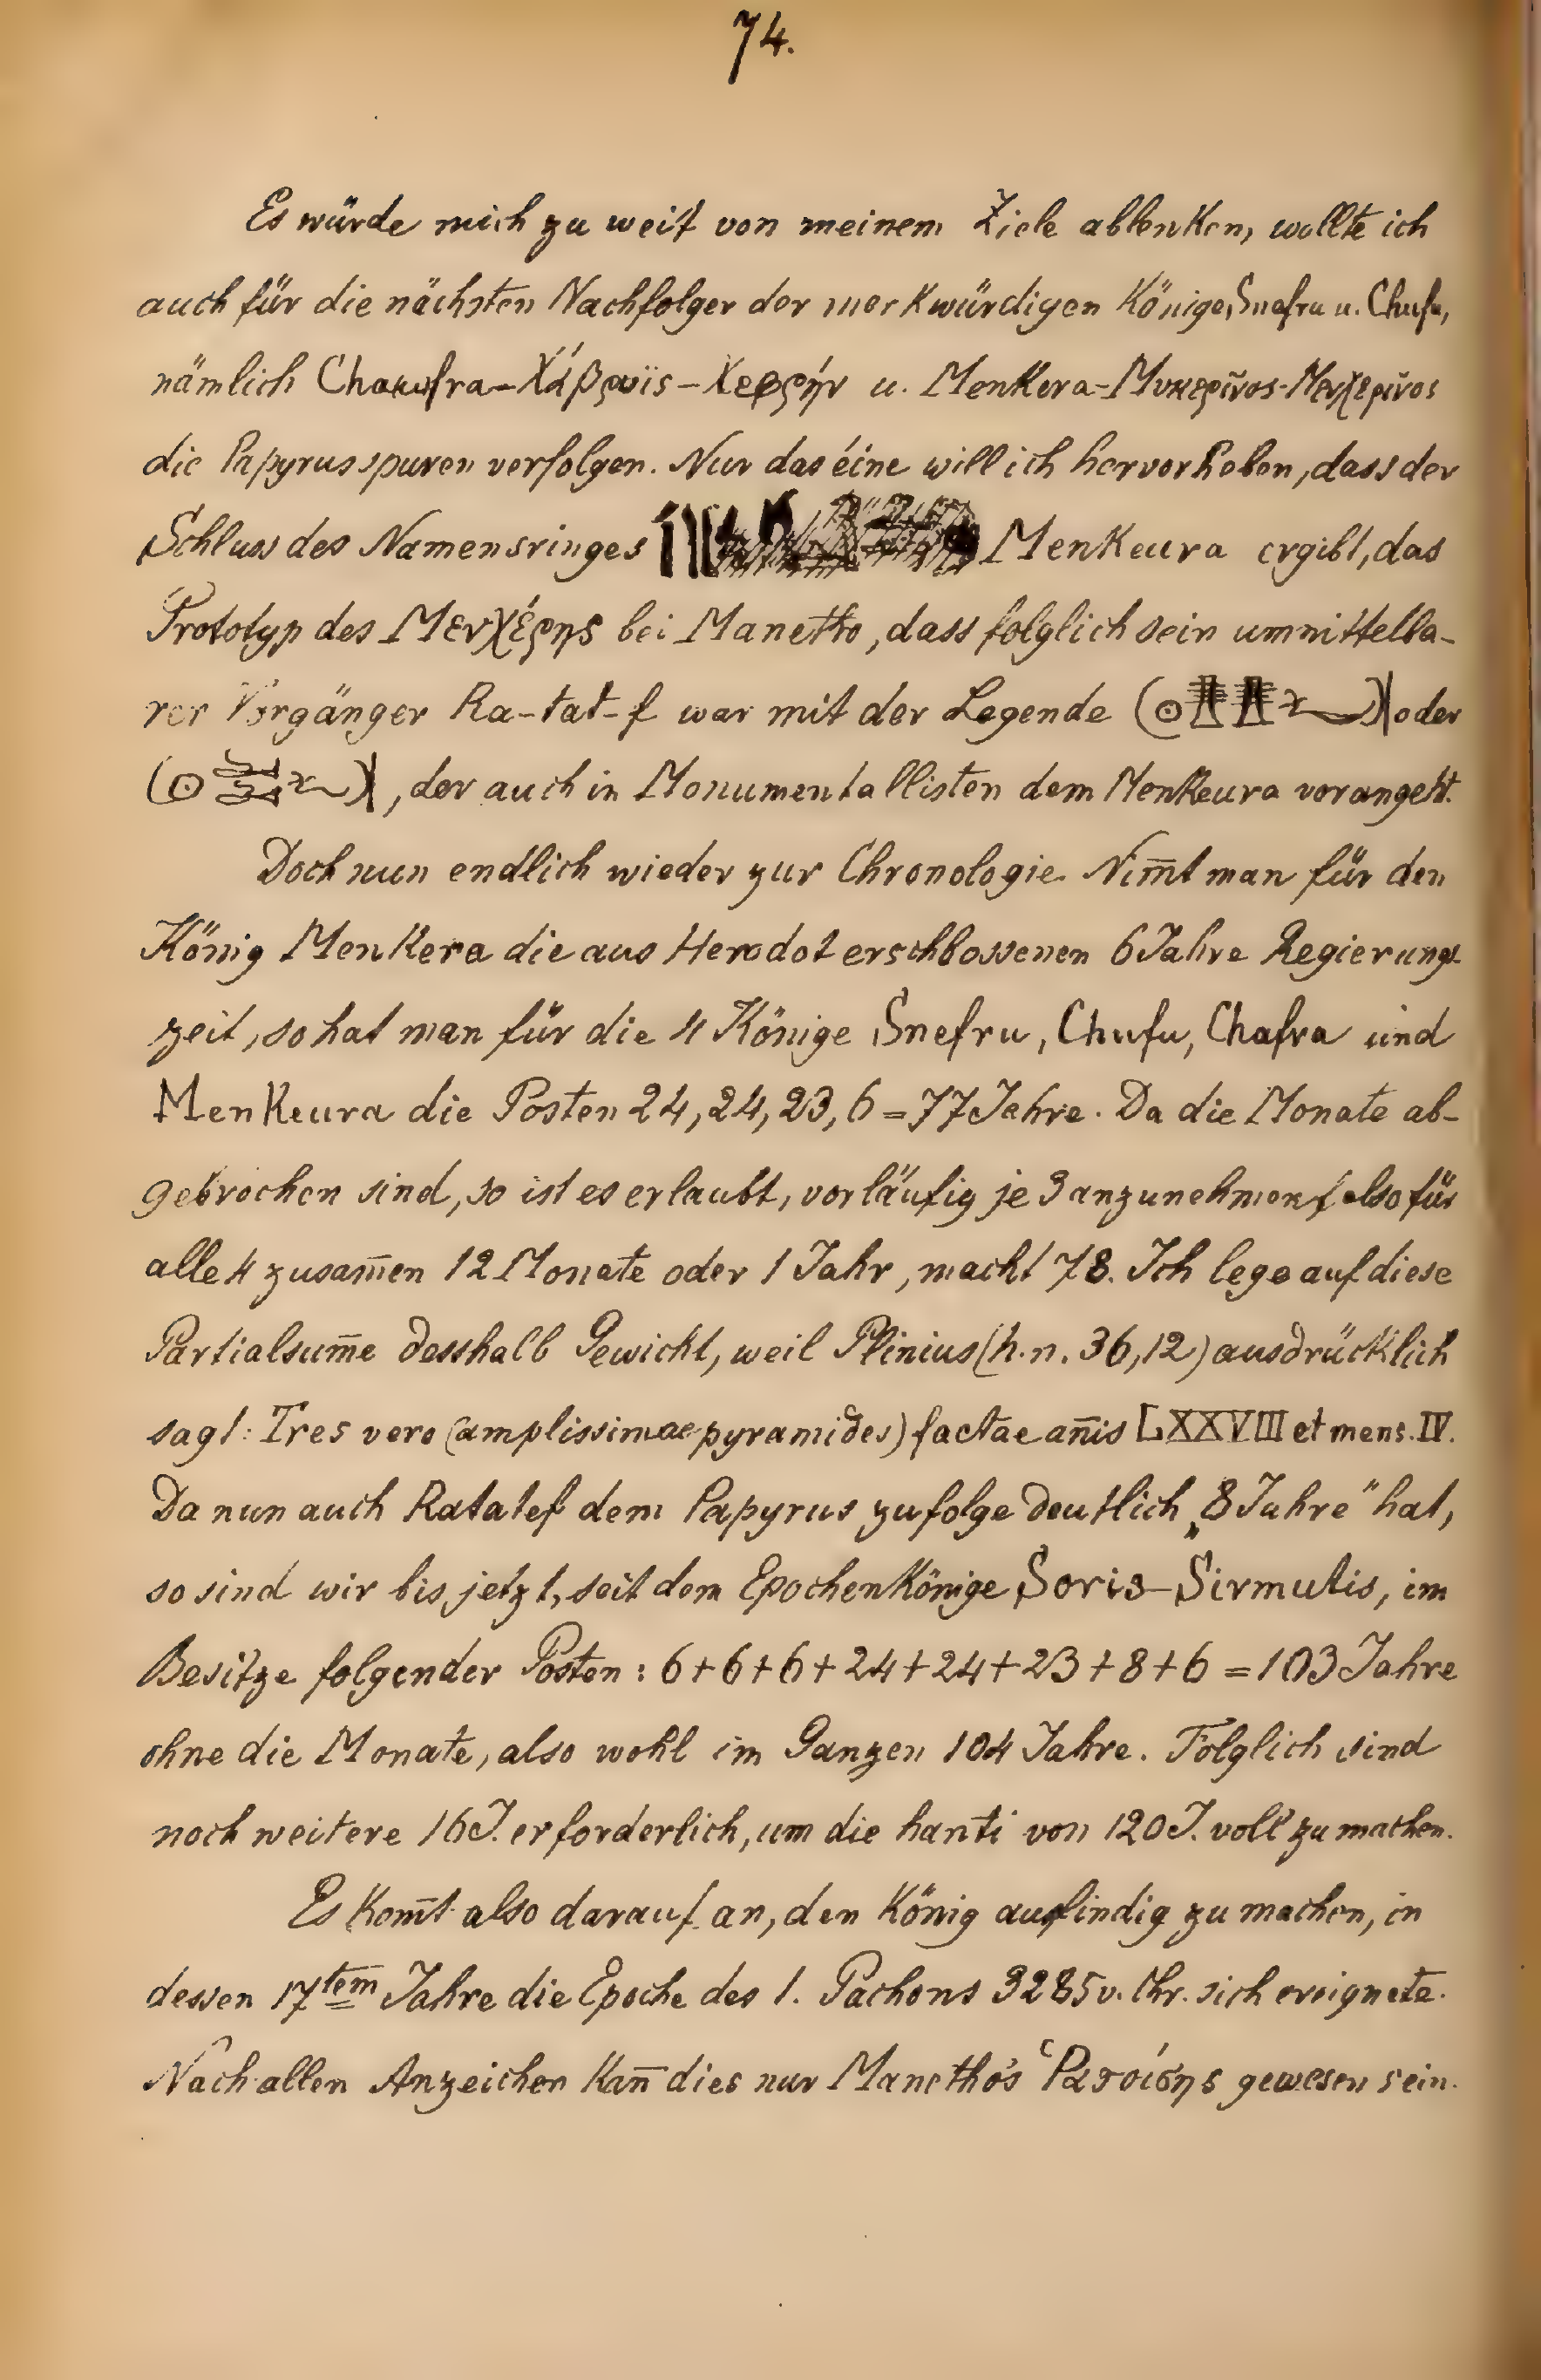 74.
Es würde mich zu weit von meinem Ziele ablenken, wollte ich
auch für die nächsten Nachfolger der merkwürdigen Könige, Snefru u. Chufu,
nämlich Chaufra-Χάβρυϊς-Χεφρήν u. Menkera-Μυκερῖνος-Μενχερῖνος
die Papyrusspuren verfolgen. Nur das éine will ich hervorheben, dass der
Schluss des Namensringes Menkeura ergibt, das
Prototyp des Μενχέρης bei Manetho, dass folglich sein unmittelba-
rer Vorgänger Ra-tat-f war mit der Legende (☉𓊽𓊽𓆑) oder
(☉ 𓆑), der auch in Monumentallisten dem Menkeura vorangeht.
Doch nun endlich wieder zur Chronologie. Nim̅t man für den
König Menkera die aus Herodot erschlossenen 6 Jahre Regierungs-
zeit, so hat man für die 4 Könige Snefru, Chufu, Chafra und
Menkeura die Posten 24, 24, 23, 6 = 77 Jahre. Da die Monate ab-
gebrochen sind, so ist es erlaubt, vorläufig je 3 anzunehmen, also für
alle 4 zusam̅en 12 Monate oder 1 Jahr, macht 78. Ich lege auf diese
Partialsum̅e desshalb Gewicht, weil Plinius (h. n. 36, 12) ausdrücklich
sagt: Tres vero (amplissimae pyramides) factae an̅is LXXVIII et mens. IV.
Da nun auch Ratatef dem Papyrus zufolge deutlich „8 Jahre" hat,
so sind wir bis jetzt, seit dem Epochenkönige Soris-Sirmutis, im
Besitze folgender Posten: 6+6+6+24+24+23+8+6 = 103 Jahre
ohne die Monate, also wohl im Ganzen 104 Jahre. Folglich sind
noch weitere 16 J. erforderlich, um die hanti von 120 J. voll zu machen.
Es kom̅t also darauf an, den König ausfindig zu machen, in
dessen 17tem Jahre die Epoche des 1. Pachons 3285 v. Chr. sich ereignete.
Nach allen Anzeichen kan̅ dies nur Manetho's Ῥατοίσης gewesen sein.